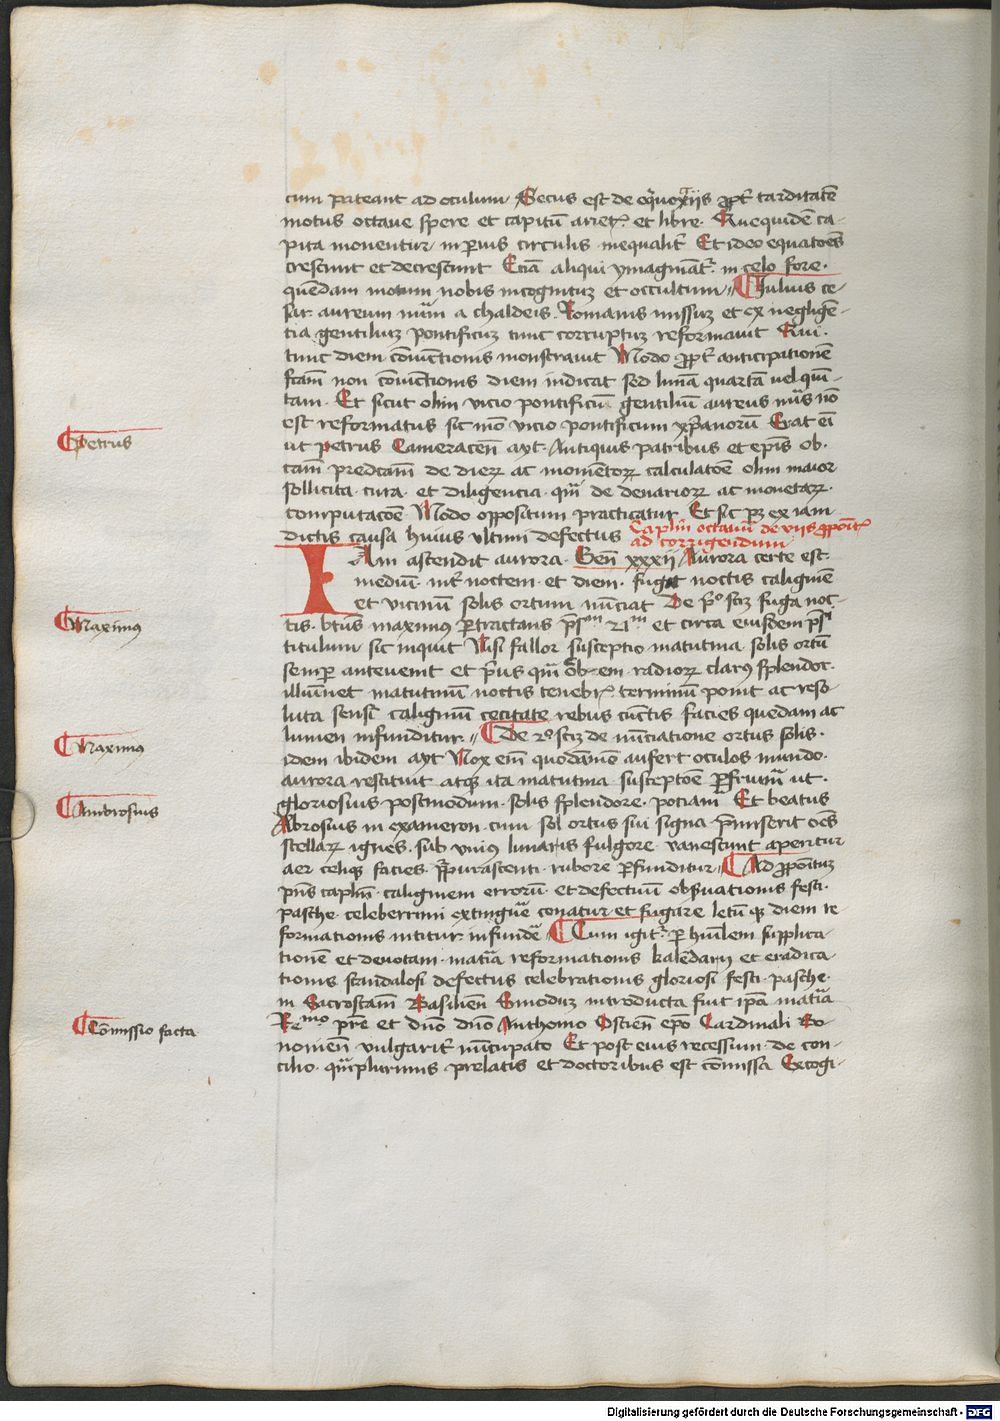 cum pateant ad oculum Secus est de equinoxiis ꝓpt̄ tarditatē
motus octaue spere et capitū ariet̄ et libre. Que quidē ca-
pita mouentur in ꝑuis circulis inequalit̄ Et ideo equatōes
crescunt et decrescunt Etiā aliqui ymaginātr̄ in celo fore
quendam motum nobis incognituꝫ et occultum Iulius ce-
sar aureum nūm a chaldeis Romanis missuꝫ et ex negligē-
tia gentiliuꝫ pontificuꝫ tunc corruptuꝫ reformauit Qui
tunc diem cōiunctionis monstrauit Modo ꝓpt̄ anticipationē
fc̄am non cōiunctionis diem indicat sed lunā quartā uel quī-
tam Et sicut olim vicio pontificū gentiliū aureus nūs nō
est reformatus sic mō vicio pontificum xp̄ianorū Erat eī
ut petrus Cameraceñ ayt Antiquis patribus et ep̄is ob
cām predcām de dieꝝ ac momētoꝝ calculatōe olim maior
sollicita cura et diligencia qm̄ de denarioꝝ ac monetaꝝ
computacōe Modo oppositum practicatur Et sic pꝫ ex iam
dictis causa huius vltimi defectus
Caplm̄ octauū de viis ꝓpoīt̄
ad corrigendum
Iam ascendit aurora Geñ xxxij Aurora certe est
mediū int̄ noctem et diem fugat noctis caliginē
et vicinū solis ortum nūnciat De p̄º sciꝫ fuga noc-
tis bt̄us maximus ꝑtractans pṡm 21m et circa eiusdem pṡ
titulum sic inquit Nisi fallor susceptio matutina solis ortū
semꝑ anteuenit et p̄us qm̄ orbem radioꝝ clarꝰ splendor
illuīnet matutinū noctis tenebr̄ terminū ponit ac reso-
luta sensī caliginū cecitate rebus cūctis facies quedam ac
lumen infunditur De 2º sciꝫ de nūnciatione ortus solis
idem ibidem ayt Nox em̄ quodāmō aufert oculos mundo
aurora restituit atqꝫ ita matutina susceptōe ꝑfruimᷣ ut
gloriosius postmodum solis splendore potiam̄ Et beatus
Abrosius in exameron cum sol ortus sui signa p̄miserit oēs
stellaꝝ ignes sub vnius luminaris fulgore vanescunt aperitur
aer celiqꝫ facies p̄purascenti rubore ꝑfunditur Ad ꝓpoītuꝫ
pn̄s caplm̄ caliginem errorū et defectuū obseruationis festi
pasche celeberrimi extinguē conatur et fugare letū qꝫ diem re-
formationis nititur infundē Cum igit̄ ꝑ humlem supplica
tionē et deuotam matiā reformationis kalēdarij et eradica
tionis scandalosi defectus celebrationis gloriosi festi pasche
in Sacrosctām Basilieñ Sinoduꝫ introducta fuit ip̄a matiā
Remo p̄re et dn̄o dn̄o Anthonio Ostieñ ep̄o Cardinali Bo-
nonieñ vulgarit̄ nūcupato Et post eius recessum de con-
cilio qm̄plurimis prelatis et doctoribus est cōmissa Excogi-
Petrus
Maximus
Maximus
Ambrosius
Cōmissio facta
Digitalisierung gefördert durch die Deutsche Forschungsgemeinschaft - DFG